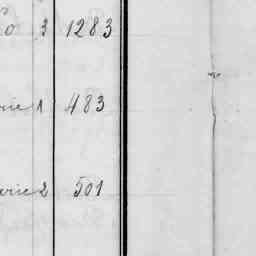 Co 3 1283
rie 1 483
erie 2 501